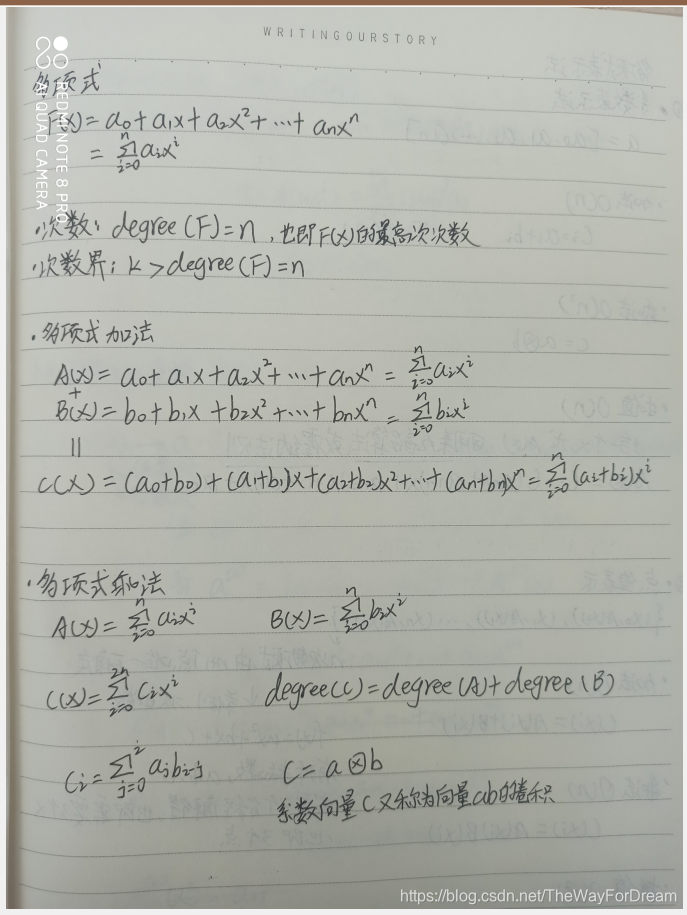 WRITINGOURSTORY
REDMI NOTE 8 PRO
AI QUAD CAMERA
多项式
F(x) = a₀ + a₁x + a₂x² + ··· + aₙxⁿ
= ∑ᵢ₌₀ⁿ aᵢxⁱ
·次数: degree (F) = n , 也即F(x)的最高次次数
·次数界: k > degree (F) = n
·多项式加法
A(x) = a₀ + a₁x + a₂x² + ··· + aₙxⁿ = ∑ᵢ₌₀ⁿ aᵢxⁱ
+
B(x) = b₀ + b₁x + b₂x² + ··· + bₙxⁿ = ∑ᵢ₌₀ⁿ bᵢxⁱ
||
C(x) = (a₀+b₀) + (a₁+b₁)x + (a₂+b₂)x² + ··· + (aₙ+bₙ)xⁿ = ∑ᵢ₌₀ⁿ (aᵢ+bᵢ)xⁱ
·多项式乘法
A(x) = ∑ᵢ₌₀ⁿ aᵢxⁱ B(x) = ∑ᵢ₌₀ⁿ bᵢxⁱ
C(x) = ∑ᵢ₌₀²ⁿ cᵢxⁱ degree(C) = degree (A) + degree (B)
cᵢ = ∑ⱼ₌₀ⁱ aⱼbᵢ₋ⱼ C = a ⊗ b
系数向量C又称为向量ab的卷积
https://blog.csdn.net/TheWayForDream